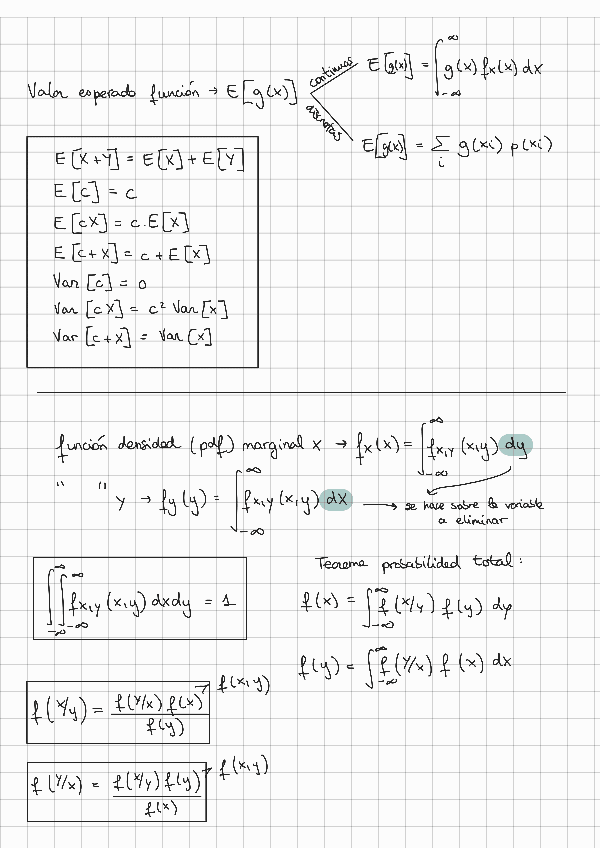 Valor esperado función → E[g(x)]
continuas E[g(x)] = ∫_{-∞}^{∞} g(x) fx(x) dx
discretas E[g(x)] = Σ_i g(xi) p(xi)
E[X+Y] = E[X] + E[Y]
E[c] = c
E[cX] = c.E[X]
E[c+X] = c + E[X]
Var[c] = 0
Var[cX] = c² Var[X]
Var[c+X] = Var[X]
función densidad (pdf) marginal x → fx(x) = ∫_{-∞}^{∞} fx,y(x,y) dy
" " y → fy(y) = ∫_{-∞}^{∞} fx,y(x,y) dx → se hace sobre la variable
a eliminar
∫_{-∞}^{∞} ∫_{-∞}^{∞} fx,y(x,y) dxdy = 1
Teorema probabilidad total:
f(x) = ∫_{-∞}^{∞} f(x/y) f(y) dy
f(y) = ∫_{-∞}^{∞} f(y/x) f(x) dx
f(x/y) = f(y/x) f(x) / f(y) → f(x,y)
f(y/x) = f(x/y) f(y) / f(x) → f(x,y)